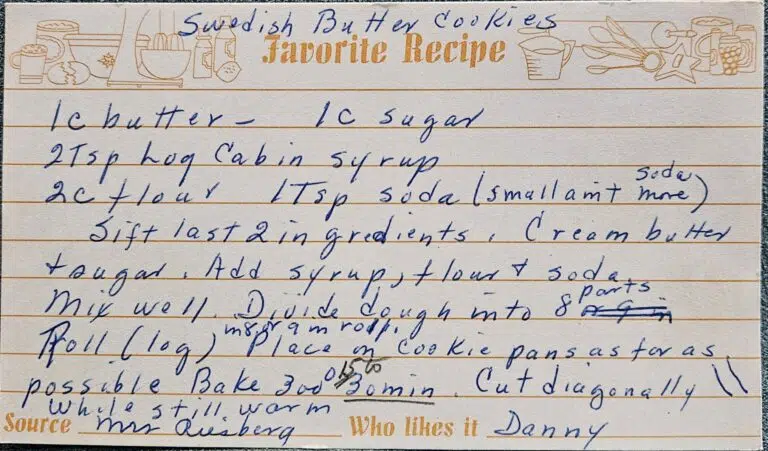 Swedish Butter Cookies
Favorite Recipe
1c butter – 1c sugar
2Tsp Log Cabin syrup
2c flour 1Tsp soda (small amt soda more)
Sift last 2 ingredients. Cream butter
+ sugar. Add syrup, flour + soda
Mix well. Divide dough into 8 parts
Roll (log) Place on cookie pans as far as
possible Bake 300° 30min. Cut diagonally \\
while still warm
Source Mrs
Who likes it Danny